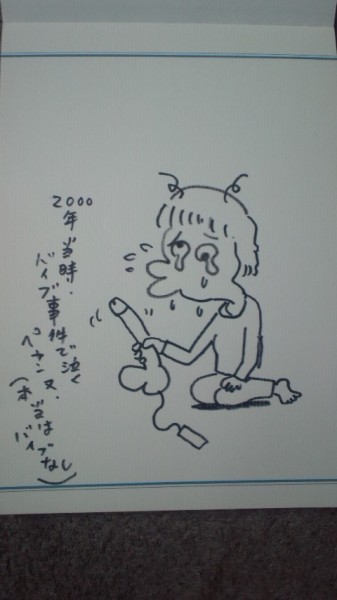 2000
年当時・
バイブ事件で泣く
ペナンヌ・
(本当は
バイブなし)